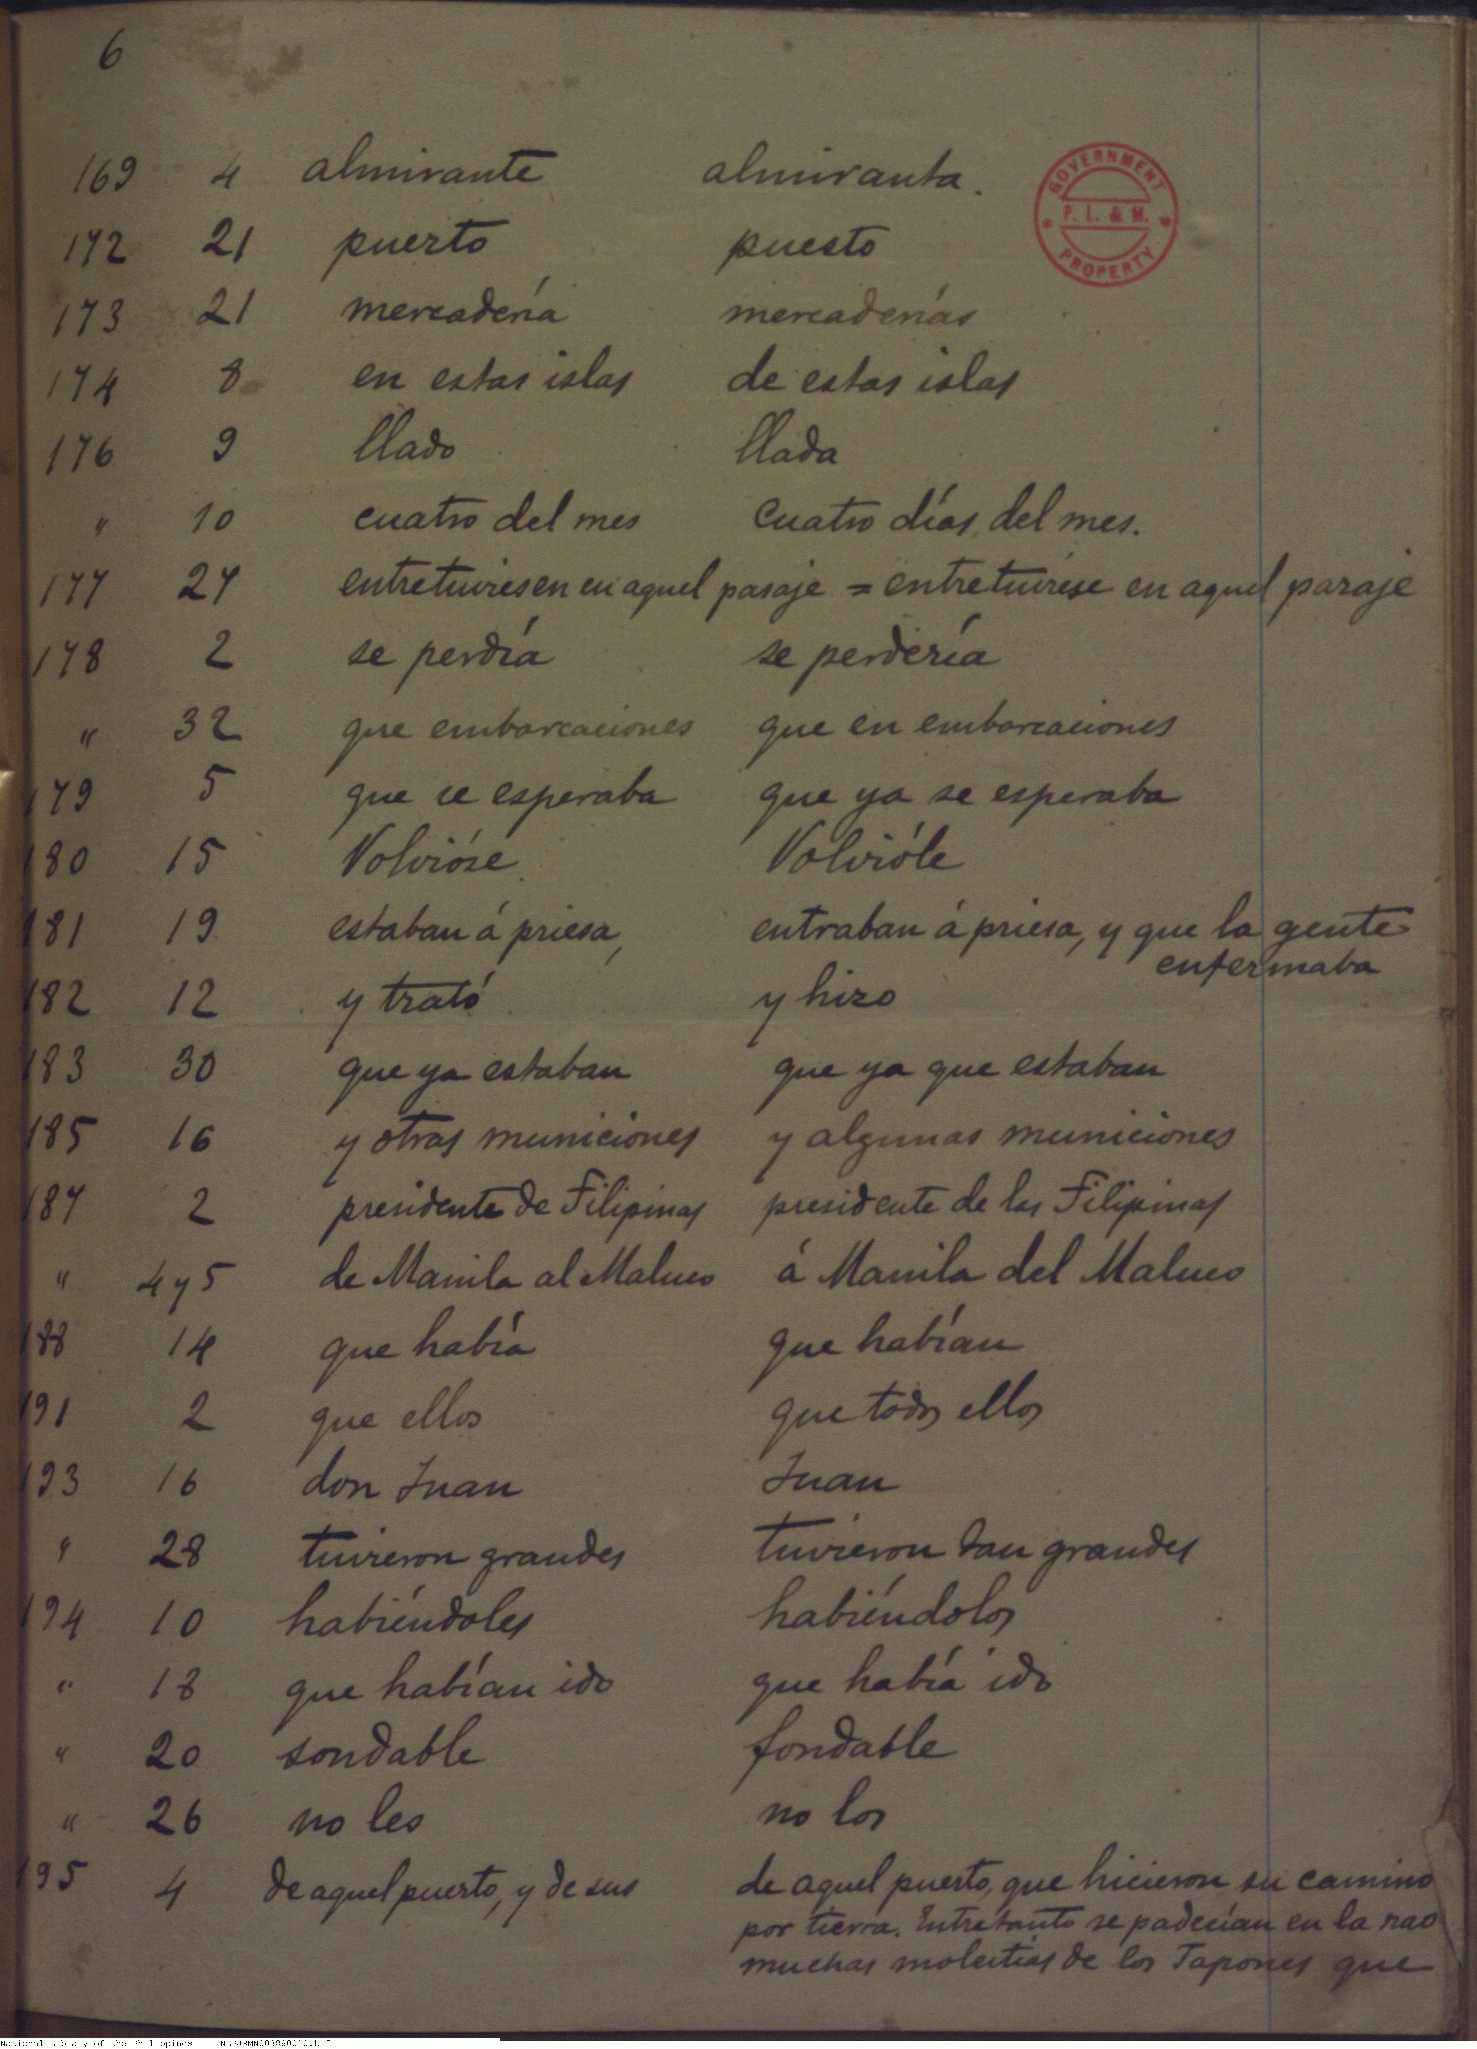 6
169 4 almirante almiranta.
GOVERNMENT
P. L. & M.
PROPERTY
172 21 puerto puesto
173 21 mercadería mercaderías
174 8 en estas islas de estas islas
176 9 llado llada
" 10 cuatro del mes cuatro días del mes.
177 27 entretuviesen en aquel pasaje = entretuviese en aquel paraje
178 2 se perdía se perdería
" 32 que embarcaciones que en embarcaciones
179 5 que se esperaba que ya se esperaba
180 15 Volvióse Volvióle
181 19 estaban á priesa, entraban á priesa, y que la gente
enfermaba
182 12 y trató y hizo
183 30 que ya estaban que ya que estaban
185 16 y otras municiones y algunas municiones
187 2 presidente de Filipinas presidente de las Filipinas
" 4 y 5 de Manila al Maluco á Manila del Maluco
188 14 que había que habían
191 2 que ellos que todos ellos
193 16 don Juan Juan
" 28 tuvieron grandes tuvieron tan grandes
194 10 habiéndoles habiéndolos
" 18 que habían ido que había ido
" 20 sondable fondable
" 26 no les no los
195 4 de aquel puerto, y de sus de aquel puerto, que hicieron su camino
por tierra. Entretanto se padecían en la nao
muchas molestias de los Japones que
National Library of the Philippines